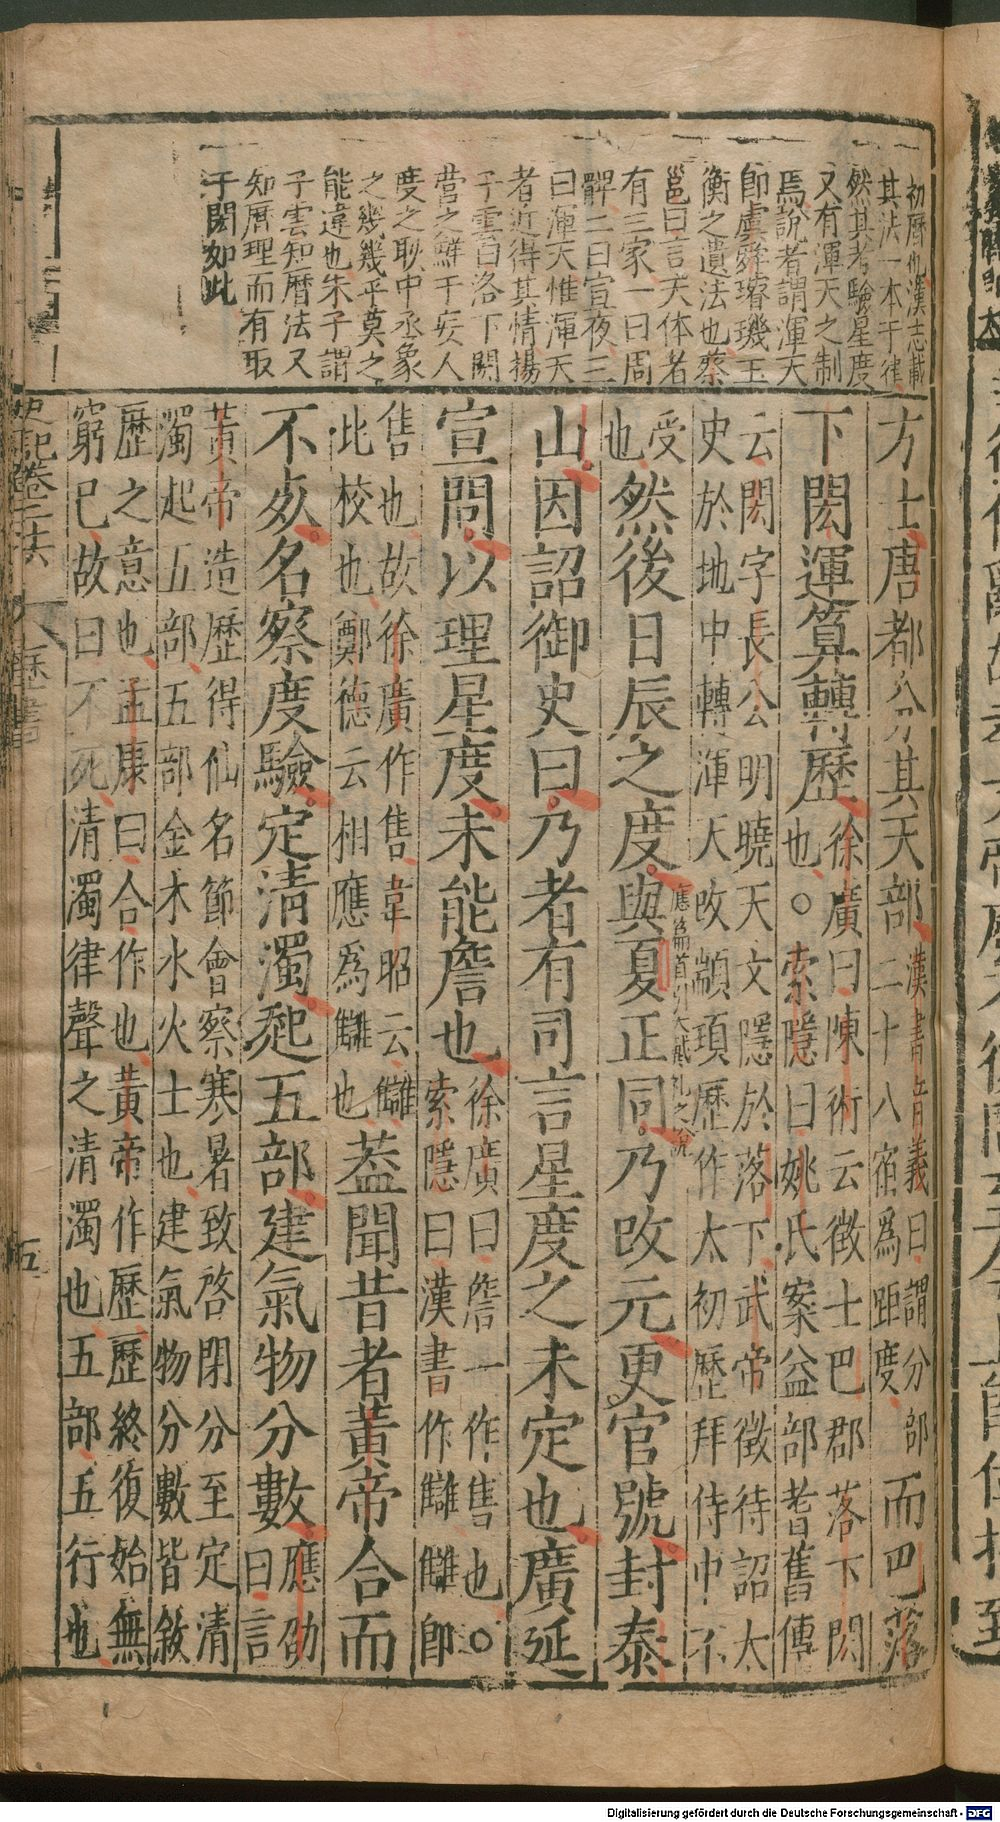 初曆也漢志載
其法一本于律
然其考驗星度
又有渾天之制
焉說者謂渾天
卽虞舜璿璣玉
衡之遺法也蔡
邕曰言天体者
有三家一曰周
髀二曰宣夜三
曰渾天惟渾天
者近得其情揚
子雲曰洛下閎
營之鮮于妄人
度之耿中丞象
之幾幾乎莫之
能違也朱子謂
子雲知曆法又
知曆理而有取
于閎如此
方士唐都分其天部漢書音義曰謂分部二十八宿為距度而巴落
下閎運算轉歷徐廣曰陳術云徵士巴郡落下閎也○索隱曰姚氏案益部耆舊傳
云閎字長公明曉天文隱於落下武帝徵待詔太
史於地中轉渾天改顓頊歷作太初歷拜侍中不
受也然後日辰之度與夏正同乃改元更官號封泰
應篇首
山因詔御史曰乃者有司言星度之未定也廣延
宣問以理星度未能詹也徐廣曰詹一作售也○索隱曰漢書作讎讎卽
售也故徐廣作售韋昭云讎比校也鄭德云相應為讎也蓋聞昔者黃帝合而
不死名察度驗定清濁起五部建氣物分數應劭曰言
黃帝造歷得仙名節會察寒暑致啓閉分至定清
濁起五部五部金木水火土也建氣物分數皆敘
歷之意也孟康曰合作也黃帝作歷歷終復始無
窮已故曰不死清濁律聲之清濁也五部五行也
史記卷二十六
歷書
五
Digitalisierung gefördert durch die Deutsche Forschungsgemeinschaft - DFG